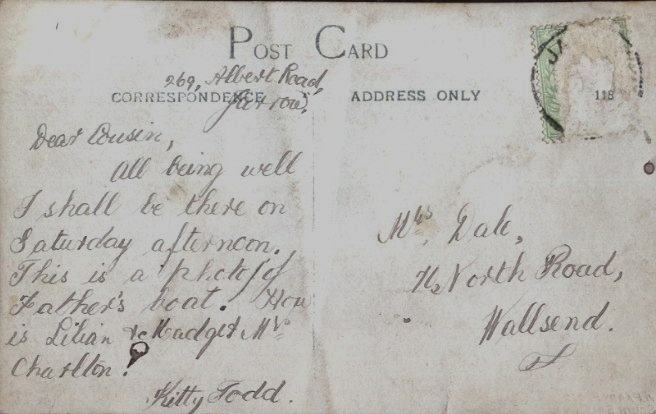 POST CARD
269, Albert Road,
CORRESPONDENCE
ADDRESS ONLY
Jarrow.
Dear Cousin,
All being well
I shall be there on
Saturday afternoon.
This is a photo of
Father's boat. How
is Lilian & Madge & Mrs
Charlton?
Kitty Todd.
JA
118
Mrs Dale,
North Road,
Wallsend.